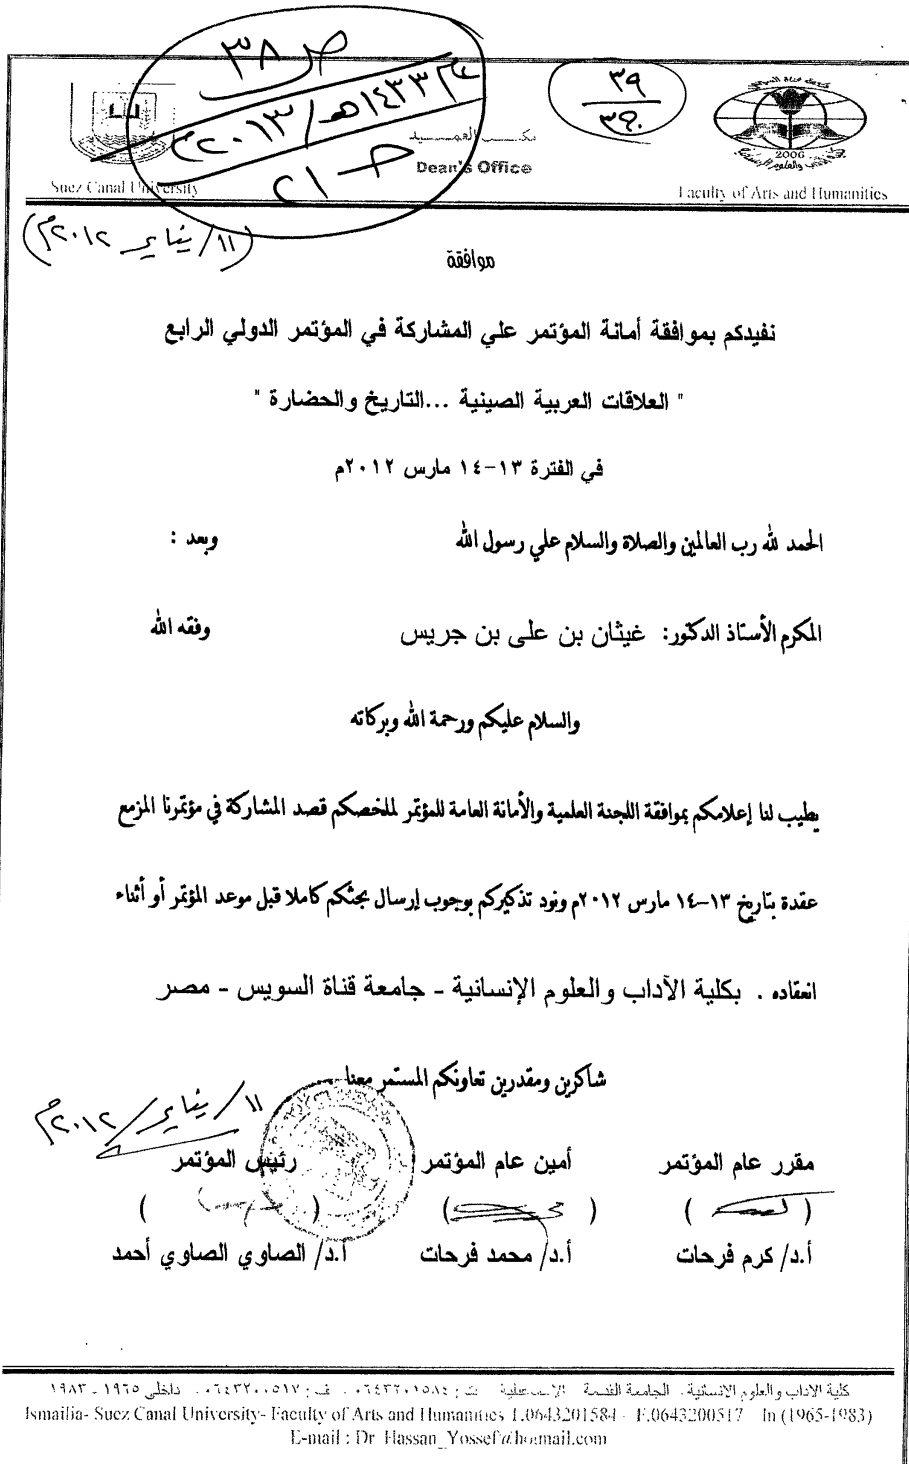 ص ٣٨
عام ١٤٣٣هـ / ٢٠١٣م
حـ ٢١
٣٩
٣٩٠
مكتب العميد
Dean's Office
2006
Suez Canal University
Faculty of Arts and Humanities
(١١/ يناير ٢٠١٢م)
موافقة
نفيدكم بموافقة أمانة المؤتمر علي المشاركة في المؤتمر الدولي الرابع
" العلاقات العربية الصينية ...التاريخ والحضارة "
في الفترة ١٣-١٤ مارس ٢٠١٢م
الحمد لله رب العالمين والصلاة والسلام علي رسول الله وبعد :
المكرم الأستاذ الدكتور: غيثان بن على بن جريس وفقه الله
والسلام عليكم ورحمة الله وبركاته
يطيب لنا إعلامكم بموافقة اللجنة العلمية والأمانة العامة للمؤتمر لملخصكم قصد المشاركة في مؤتمرنا المزمع
عقدة بتاريخ ١٣-١٤ مارس ٢٠١٢م ونود تذكيركم بوجوب إرسال بحثكم كاملا قبل موعد المؤتمر أو أثناء
انعقاده . بكلية الآداب والعلوم الإنسانية - جامعة قناة السويس - مصر
شاكرين ومقدرين تعاونكم المستمر معنا
١١/ يناير/ ٢٠١٢م
مقرر عام المؤتمر أمين عام المؤتمر رئيس المؤتمر
( ) ( ) ( )
أ.د/ كرم فرحات أ.د/ محمد فرحات أ.د/ الصاوي الصاوي أحمد
كلية الاداب والعلوم الانسانية. الجامعة القديمة الإسماعيلية ت : ٠٦٤٣٢٠١٥٨٤ . ف : ٠٦٤٣٢٠٠٥١٧ . داخلى ١٩٦٥ - ١٩٨٣
Ismailia- Suez Canal University- Faculty of Arts and Humanities T.0643201584 - F.0643200517 In (1965-1983)
E-mail : Dr_Hassan_Yossef@hotmail.com